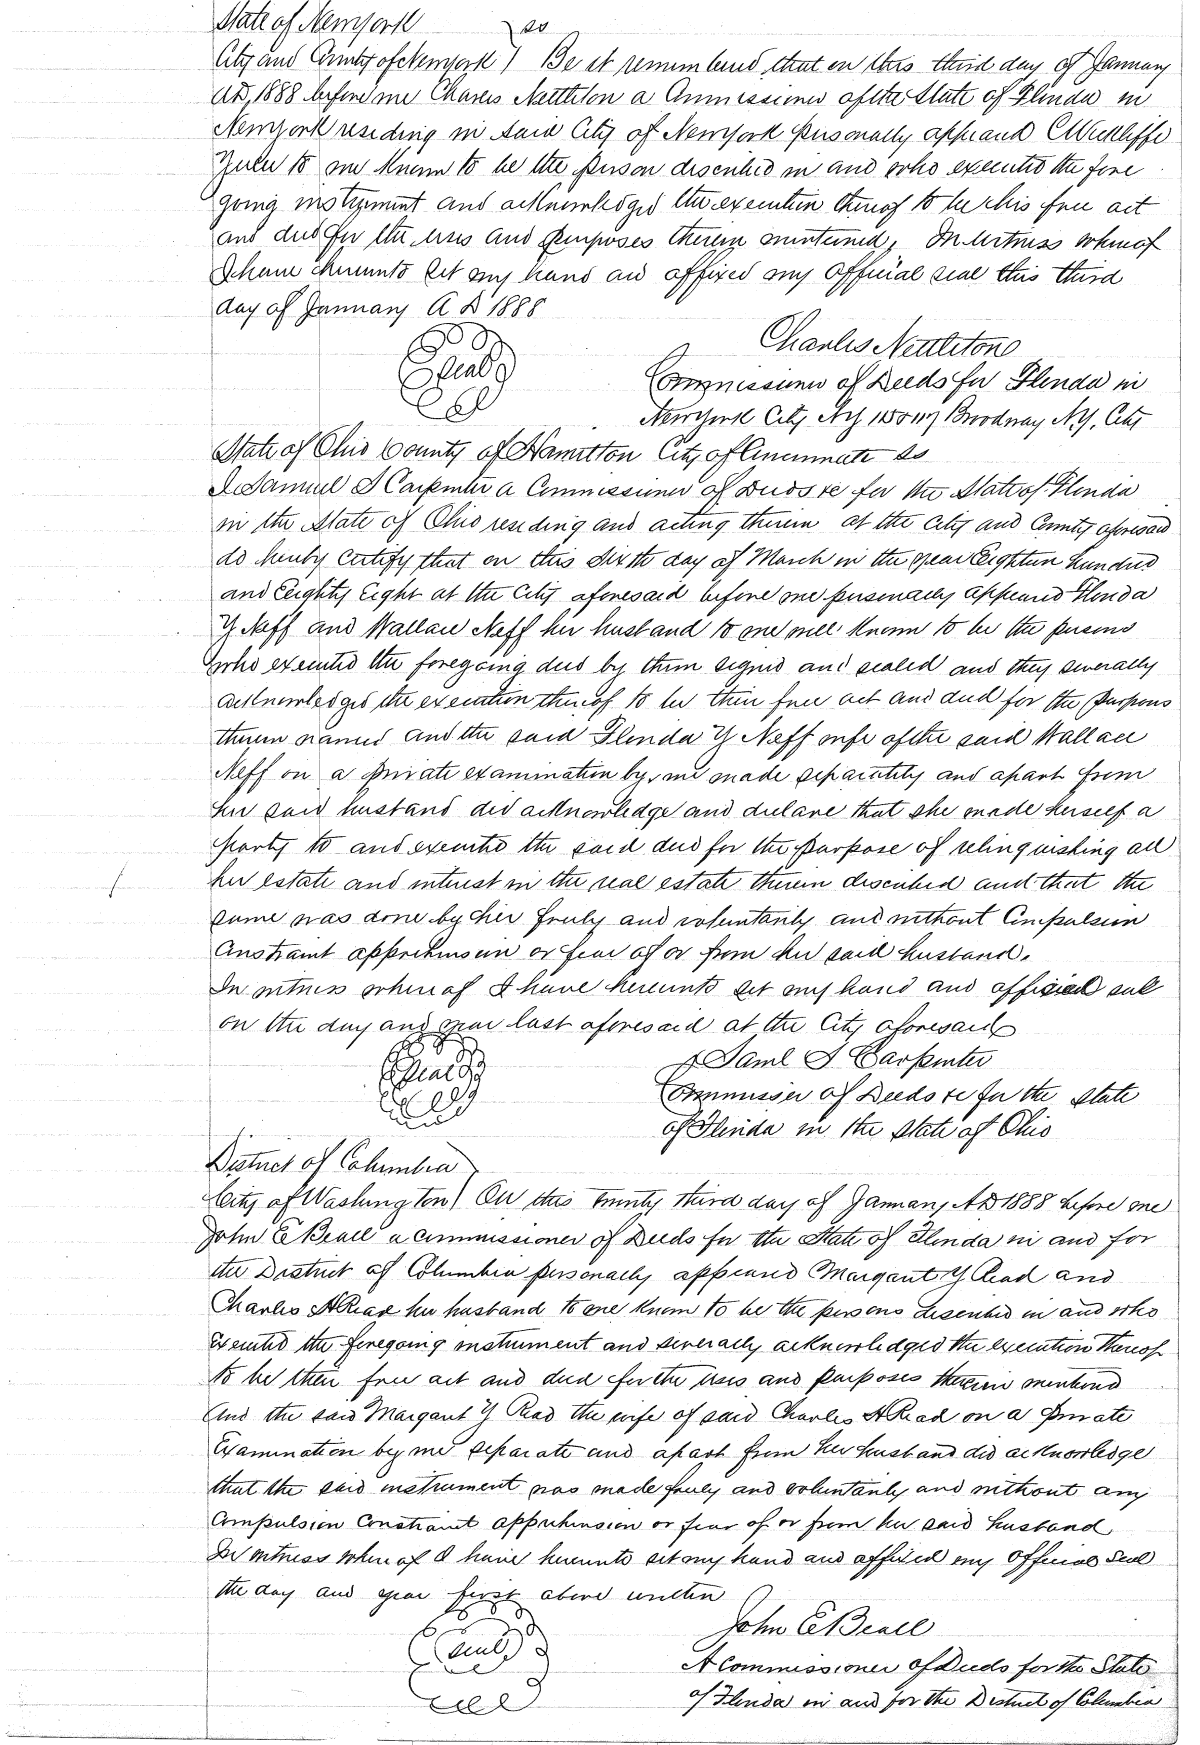 State of New York } ss
City and County of New York } Be it remembered that on this third day of January
AD, 1888 before me Charles Nettleton a Commissioner of the State of Florida in
New York residing in said City of New York personally appeared C Wickliffe
Yulee to me known to be the person described in and who executed the fore
going instrument and acknowledged the execution thereof to be his free act
and deed for the uses and purposes therein mentioned, In witness whereof
I have hereunto set my hand and affixed my official seal this third
day of January A D 1888
Seal
Charles Nettleton
Commissioner of Deeds for Florida in
New York City NY 115 & 117 Broadway N.Y. City
State of Ohio County of Hamilton City of Cincinnati ss
I Samuel S Carpenter a Commissioner of Deeds &c for the State of Florida
in the State of Ohio residing and acting therein at the City and County aforesaid
do hereby certify that on this sixth day of March in the year Eighteen hundred
and Eighty Eight at the City aforesaid before me personally appeared Florida
Y Neff and Wallace Neff her husband to me well known to be the persons
who executed the foregoing deed by them signed and sealed and they severally
acknowledged the execution thereof to be their free act and deed for the purposes
therein named and the said Florida Y Neff wife of the said Wallace
Neff on a private examination by me made separately and apart from
her said husband did acknowledge and declare that she made herself a
party to and executed the said deed for the purpose of relinquishing all
her estate and interest in the real estate therein described and that the
same was done by her freely and voluntarily and without Compulsion
Constraint apprehension or fear of or from her said husband.
In witness whereof I have hereunto set my hand and official seal
on the day and year last aforesaid at the City aforesaid
Seal
Saml S Carpenter
Commissier of Deeds &c for the state
of Florida in the state of Ohio
District of Columbia }
City of Washington } On this twenty third day of January AD 1888 before me
John E Beall a commissioner of Deeds for the State of Florida in and for
the District of Columbia personally appeared Margaret Y Read and
Charles A Read her husband to me known to be the persons described in and who
executed the foregoing instrument and severally acknowledged the execution thereof
to be their free act and deed for the uses and purposes therein mentioned
And the said Margaret Y Read the wife of said Charles A Read on a private
Examination by me separate and apart from her husband did acknowledge
that the said instrument was made freely and voluntarily and without any
Compulsion Constraint apprehension or fear of or from her said husband
In witness whereof I have hereunto set my hand and affixed my official Seal
the day and year first above written
Seal
John E Beall
A Commissioner of Deeds for the State
of Florida in and for the District of Columbia